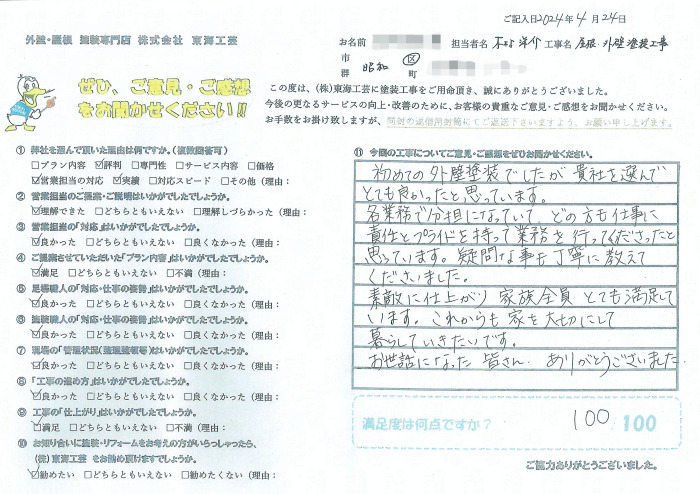 ご記入日2024年4月24日
外壁・屋根 塗装専門店 株式会社 東海工芸
お名前 担当者名 洋介 工事名 屋根・外壁塗装工事
市
群 昭和 区 町
ぜひ、ご意見・ご感想
をお聞かせください!!
この度は、(株)東海工芸に塗装工事をご用命頂き、誠にありがとうございました。
今後の更なるサービスの向上・改善のために、お客様の貴重なご意見・ご感想をお聞かせください。
お手数をお掛け致しますが、同封の返信用封筒にてご返送下さいますよう、お願い申し上げます。
① 弊社を選んで頂いた理由は何ですか。(複数回答可)
□プラン内容 ☑評判 □専門性 □サービス内容 □価格
☑営業担当の対応 ☑実績 □対応スピード □その他(理由:
② 営業担当のご提案・ご説明はいかがでしたでしょうか。
☑理解できた □どちらともいえない □理解しづらかった(理由:
③ 営業担当の「対応」はいかがでしたでしょうか。
☑良かった □どちらともいえない □良くなかった(理由:
④ ご提案させていただいた「プラン内容」はいかがでしたでしょうか。
☑満足 □どちらともいえない □不満(理由:
⑤ 足場職人の「対応・仕事の姿勢」はいかがでしたでしょうか。
☑良かった □どちらともいえない □良くなかった(理由:
⑥ 塗装職人の「対応・仕事の姿勢」はいかがでしたでしょうか。
☑良かった □どちらともいえない □良くなかった(理由:
⑦ 現場の「管理状況(整理整頓等)」はいかがでしたでしょうか。
☑良かった □どちらともいえない □良くなかった(理由:
⑧ 「工事の進め方」はいかがでしたでしょうか。
☑良かった □どちらともいえない □良くなかった(理由:
⑨ 工事の「仕上がり」はいかがでしたでしょうか。
☑満足 □どちらともいえない □不満(理由:
⑩ お知り合いに塗装・リフォームをお考えの方がいらっしゃったら、
(株)東海工芸 をお勧め頂けますでしょうか。
☑勧めたい □どちらともいえない □勧めたくない(理由:
⑪ 今回の工事についてご意見・ご感想をぜひお聞かせください。
初めての外壁塗装でしたが貴社を選んで
とても良かったと思っています。
各業務で分担になっていて、どの方も仕事に
責任とプライドを持って業務を行ってくださったと
思っています。疑問な事も丁寧に教えて
くださいました。
素敵に仕上がり家族全員とても満足して
います。これからも家を大切にして
暮らしていきたいです。
お世話になった皆さん、ありがとうございました
満足度は何点ですか? 100 100
ご協力ありがとうございました。